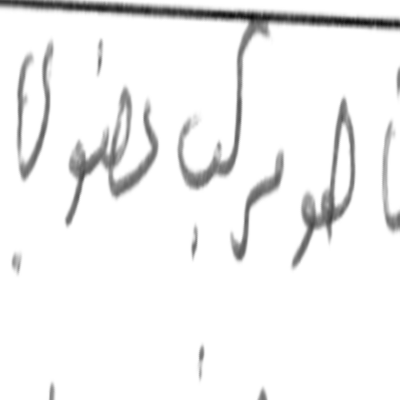 هو مركب عضوي